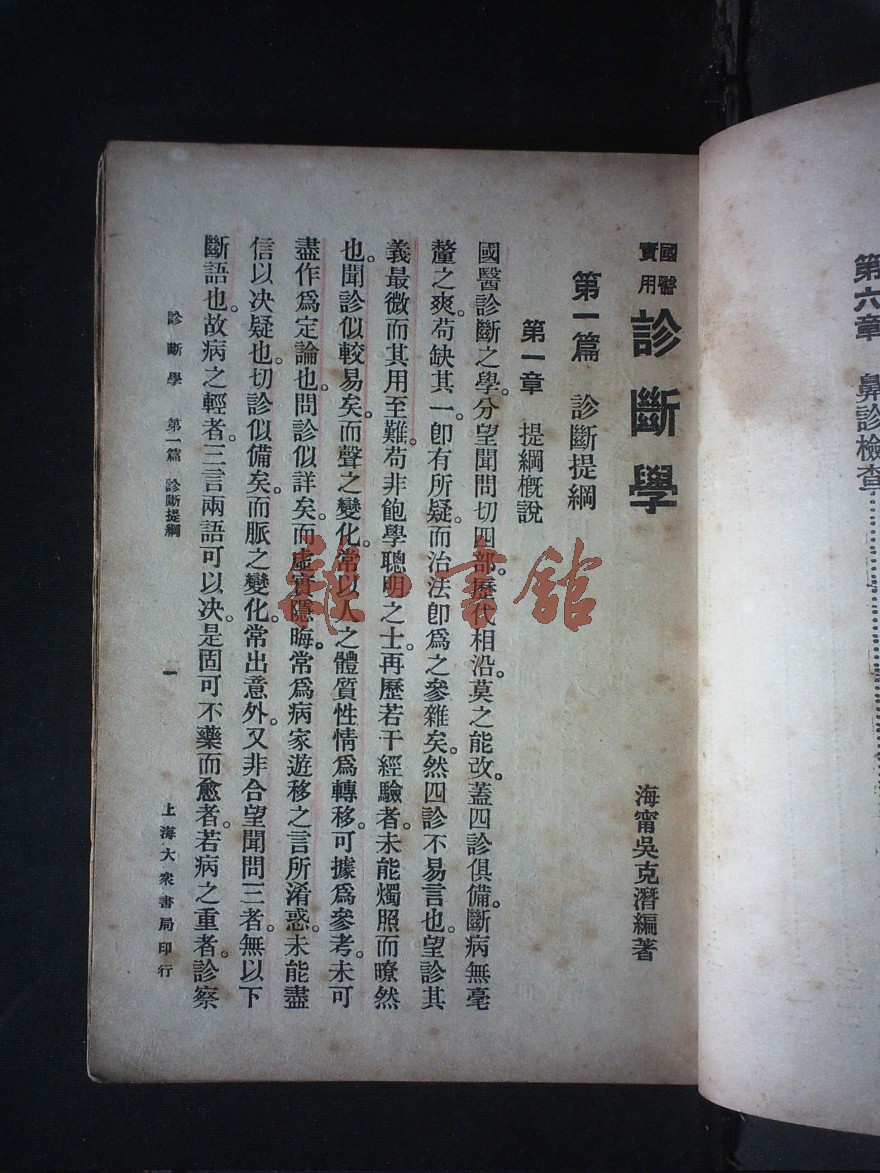 第六章 鼻診檢查
國醫實用 診斷學
海甯吳克潛編著
第一篇 診斷提綱
第一章 提綱概說
國醫診斷之學。分望聞問切四部。歷代相沿。莫之能改。蓋四診俱備。斷病無毫
釐之爽。苟缺其一。卽有所疑。而治法卽爲之參雜矣。然四診不易言也。望診其
義最微而其用至難。苟非飽學聰明之士。再歷若干經驗者。未能燭照而瞭然
也。聞診似較易矣。而聲之變化。常以人之體質性情爲轉移。可據爲參考。未可
盡作爲定論也。問診似詳矣。而虛實隱晦。常爲病家遊移之言所淆惑。未能盡
信以決疑也。切診似備矣。而脈之變化。常出意外。又非合望聞問三者。無以下
斷語也。故病之輕者。三言兩語可以決。是固可不藥而愈者。若病之重者。診察
診斷學 第一篇 診斷提綱 一 上海大衆書局印行
雜·書館